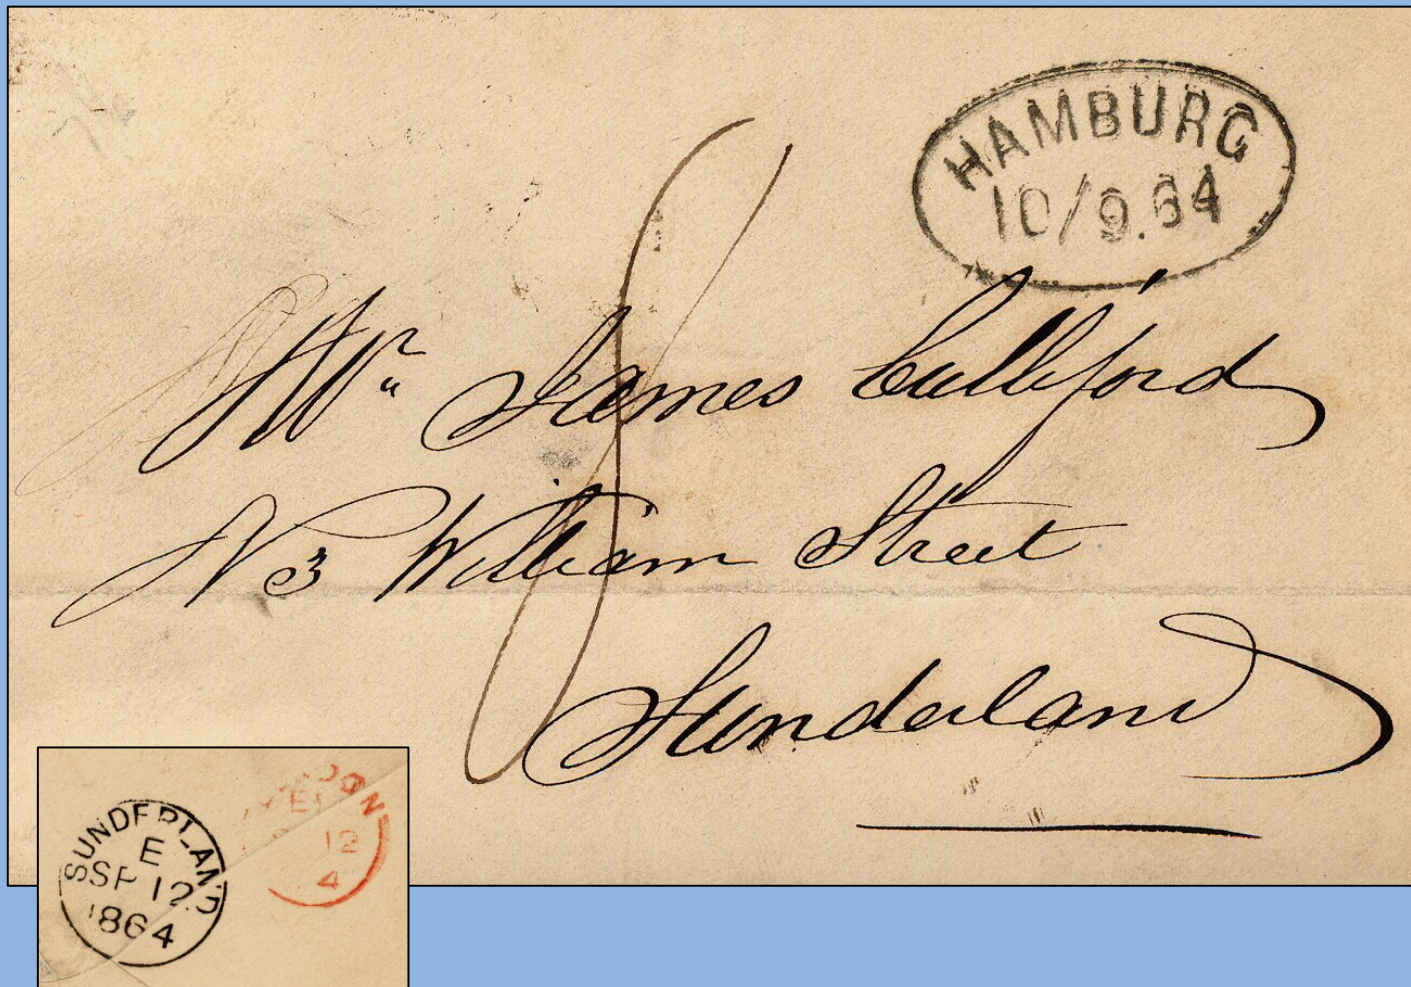 HAMBURG
10/9.64
8
Mr. James Culliford
N 3 William Street
Sunderland
SUNDERLAND
E
SP 12
1864
12
4